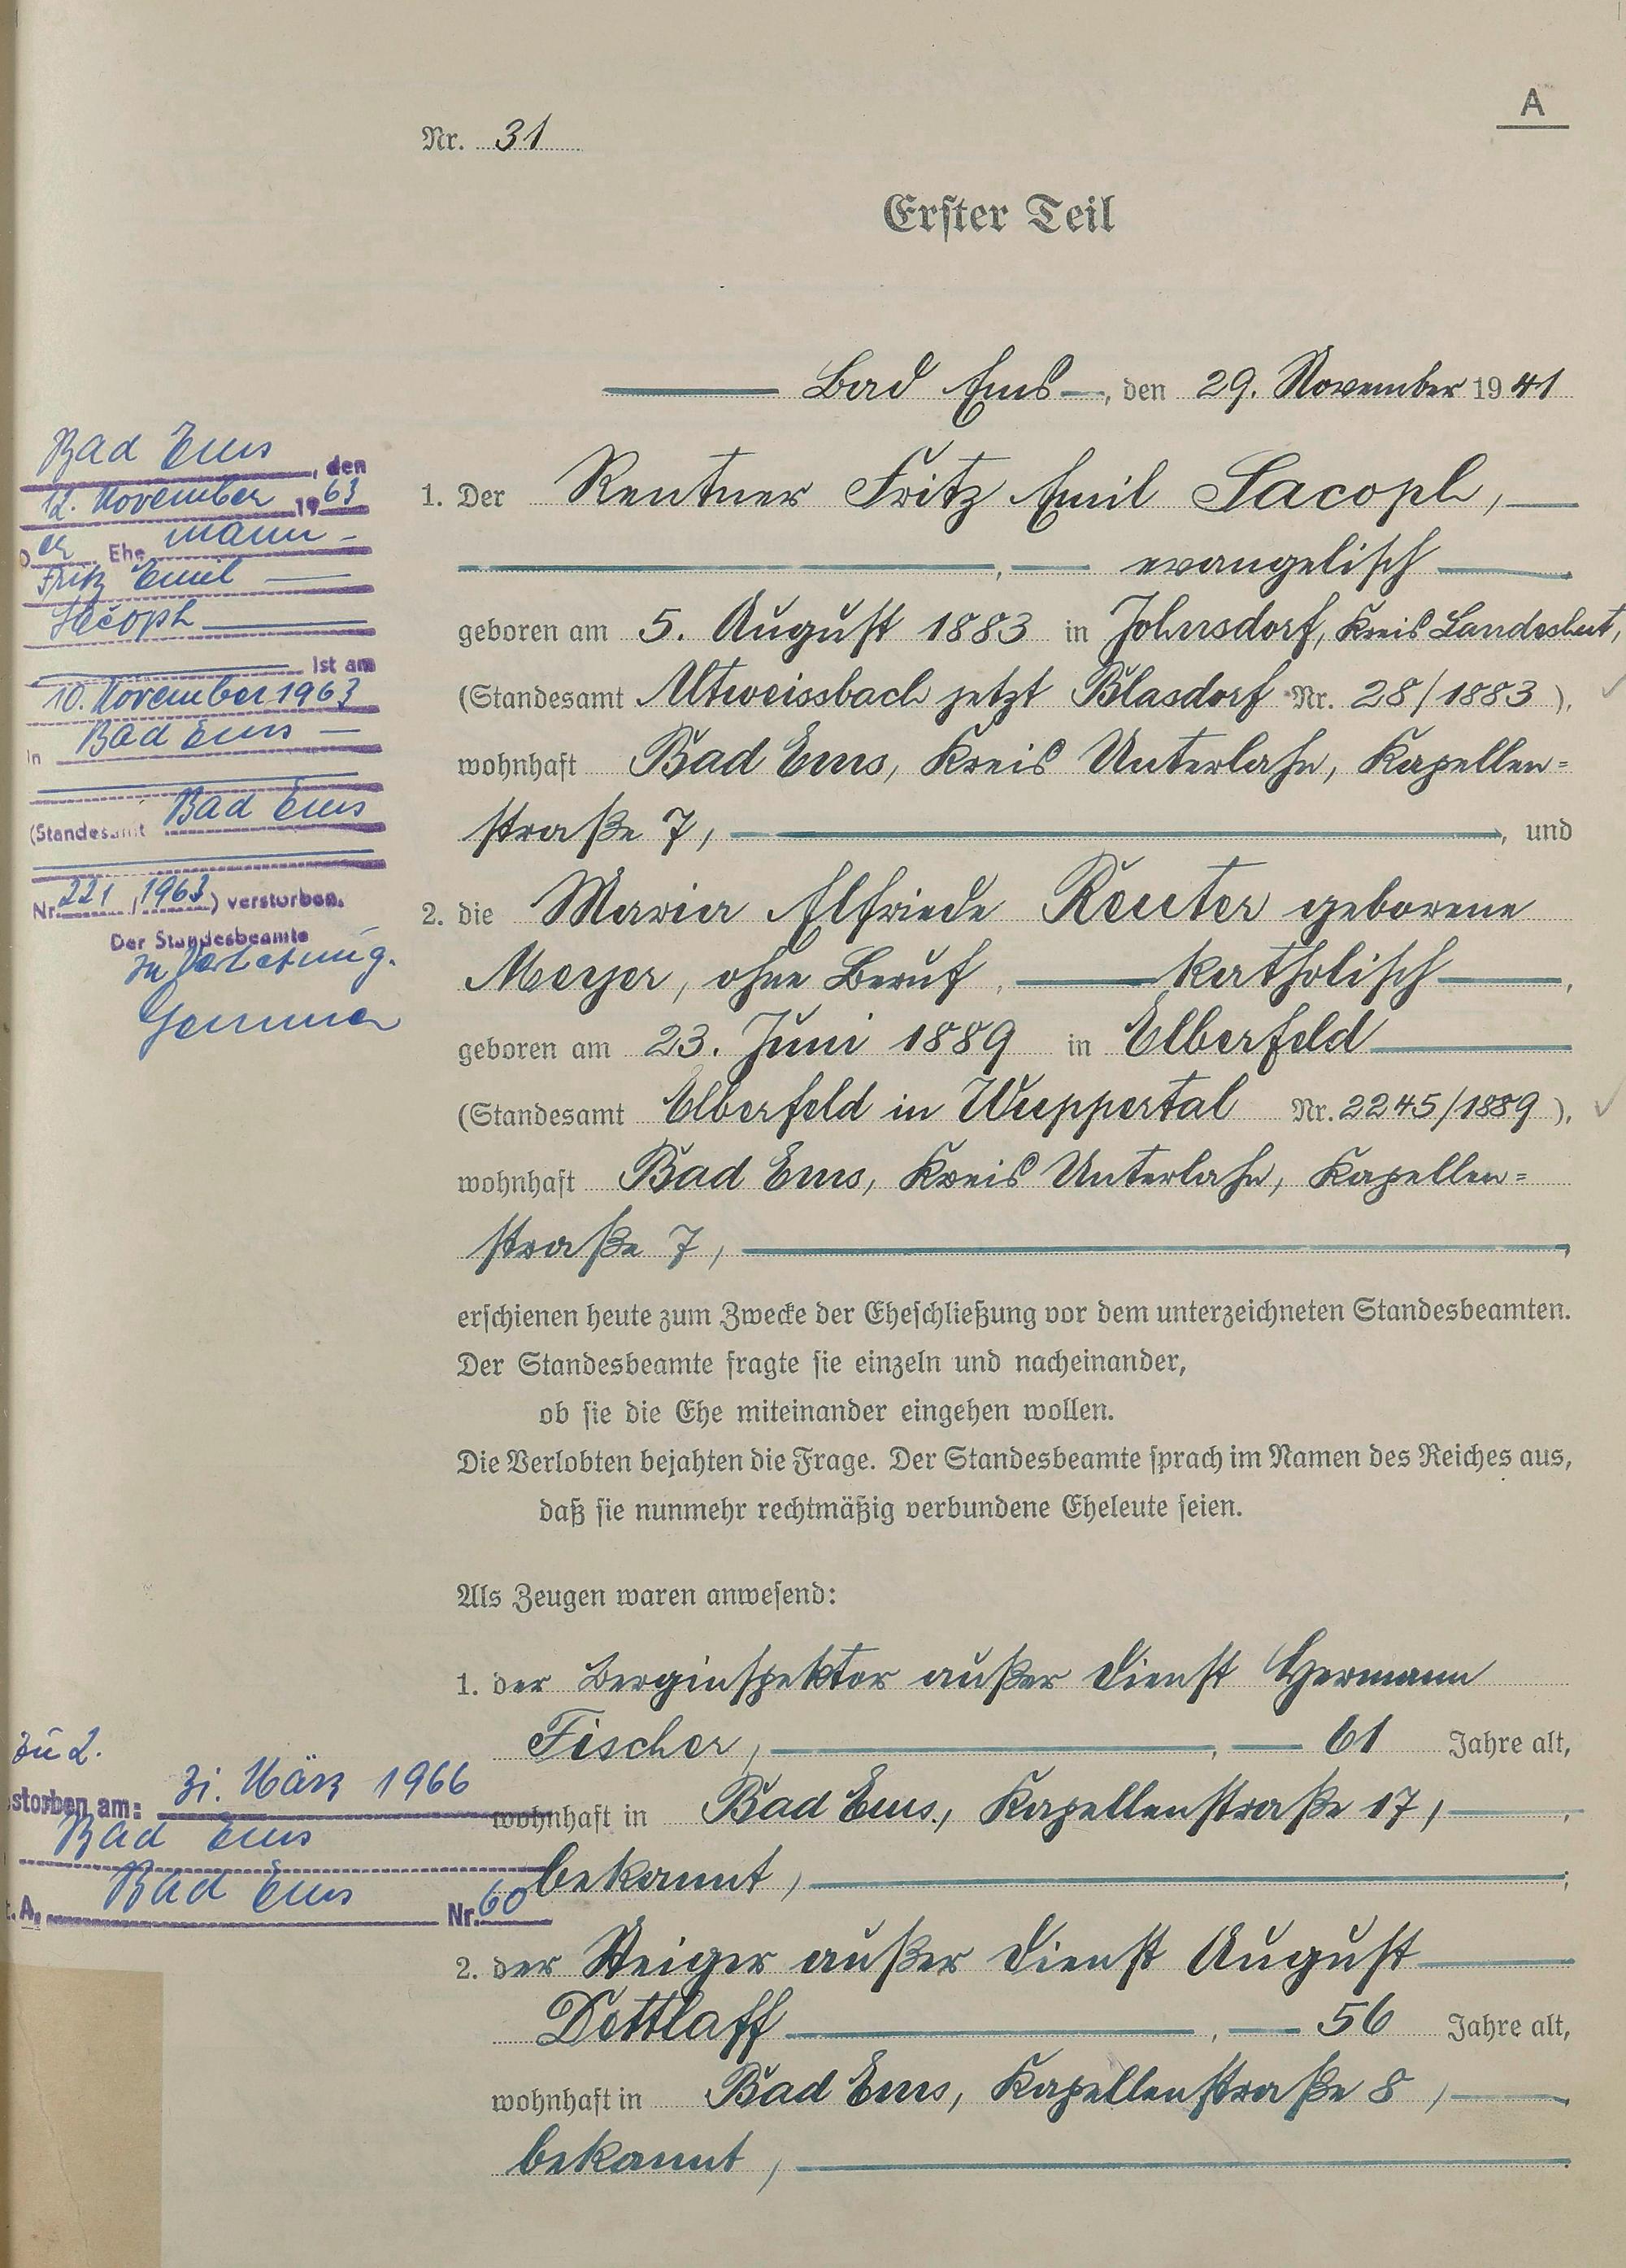 A
Nr. 31
Erster Teil
Bad Ems, den 29. November 1941
1. Der Rentner Fritz Emil Sacoph,
evangelisch
geboren am 5. August 1883 in Johnsdorf, Kreis Landeshut,
(Standesamt Altweissbach jetzt Blasdorf Nr. 28/1883),
wohnhaft Bad Ems, Kreis Unterlahn, Kapellen=
straße 7, und
2. die Maria Elfriede Reuter geborene
Meyer, ohne Beruf, katholisch,
geboren am 23. Juni 1889 in Elberfeld
(Standesamt Elberfeld in Wuppertal Nr. 2245/1889),
wohnhaft Bad Ems, Kreis Unterlahn, Kapellen=
straße 7,
erschienen heute zum Zwecke der Eheschließung vor dem unterzeichneten Standesbeamten.
Der Standesbeamte fragte sie einzeln und nacheinander,
ob sie die Ehe miteinander eingehen wollen.
Die Verlobten bejahten die Frage. Der Standesbeamte sprach im Namen des Reiches aus,
daß sie nunmehr rechtmäßig verbundene Eheleute seien.
Als Zeugen waren anwesend:
1. der Berginspektor außer Dienst Hermann
Fischer, 61 Jahre alt,
wohnhaft in Bad Ems, Kapellenstraße 17,
bekannt,
2. der Steiger außer Dienst August
Dettlaff, 56 Jahre alt,
wohnhaft in Bad Ems, Kapellenstraße 8,
bekannt,
Bad Ems, den
12. November 1963
Der Ehe mann -
Fritz Emil
ist am
10. November 1963
in Bad Ems
(Standesamt Bad Ems
Nr. 221/1963) verstorben.
Der Standesbeamte
In Vertretung.
zu 2.
storben am: 31. März 1966
Bad Ems
t. A. Bad Ems Nr. 60